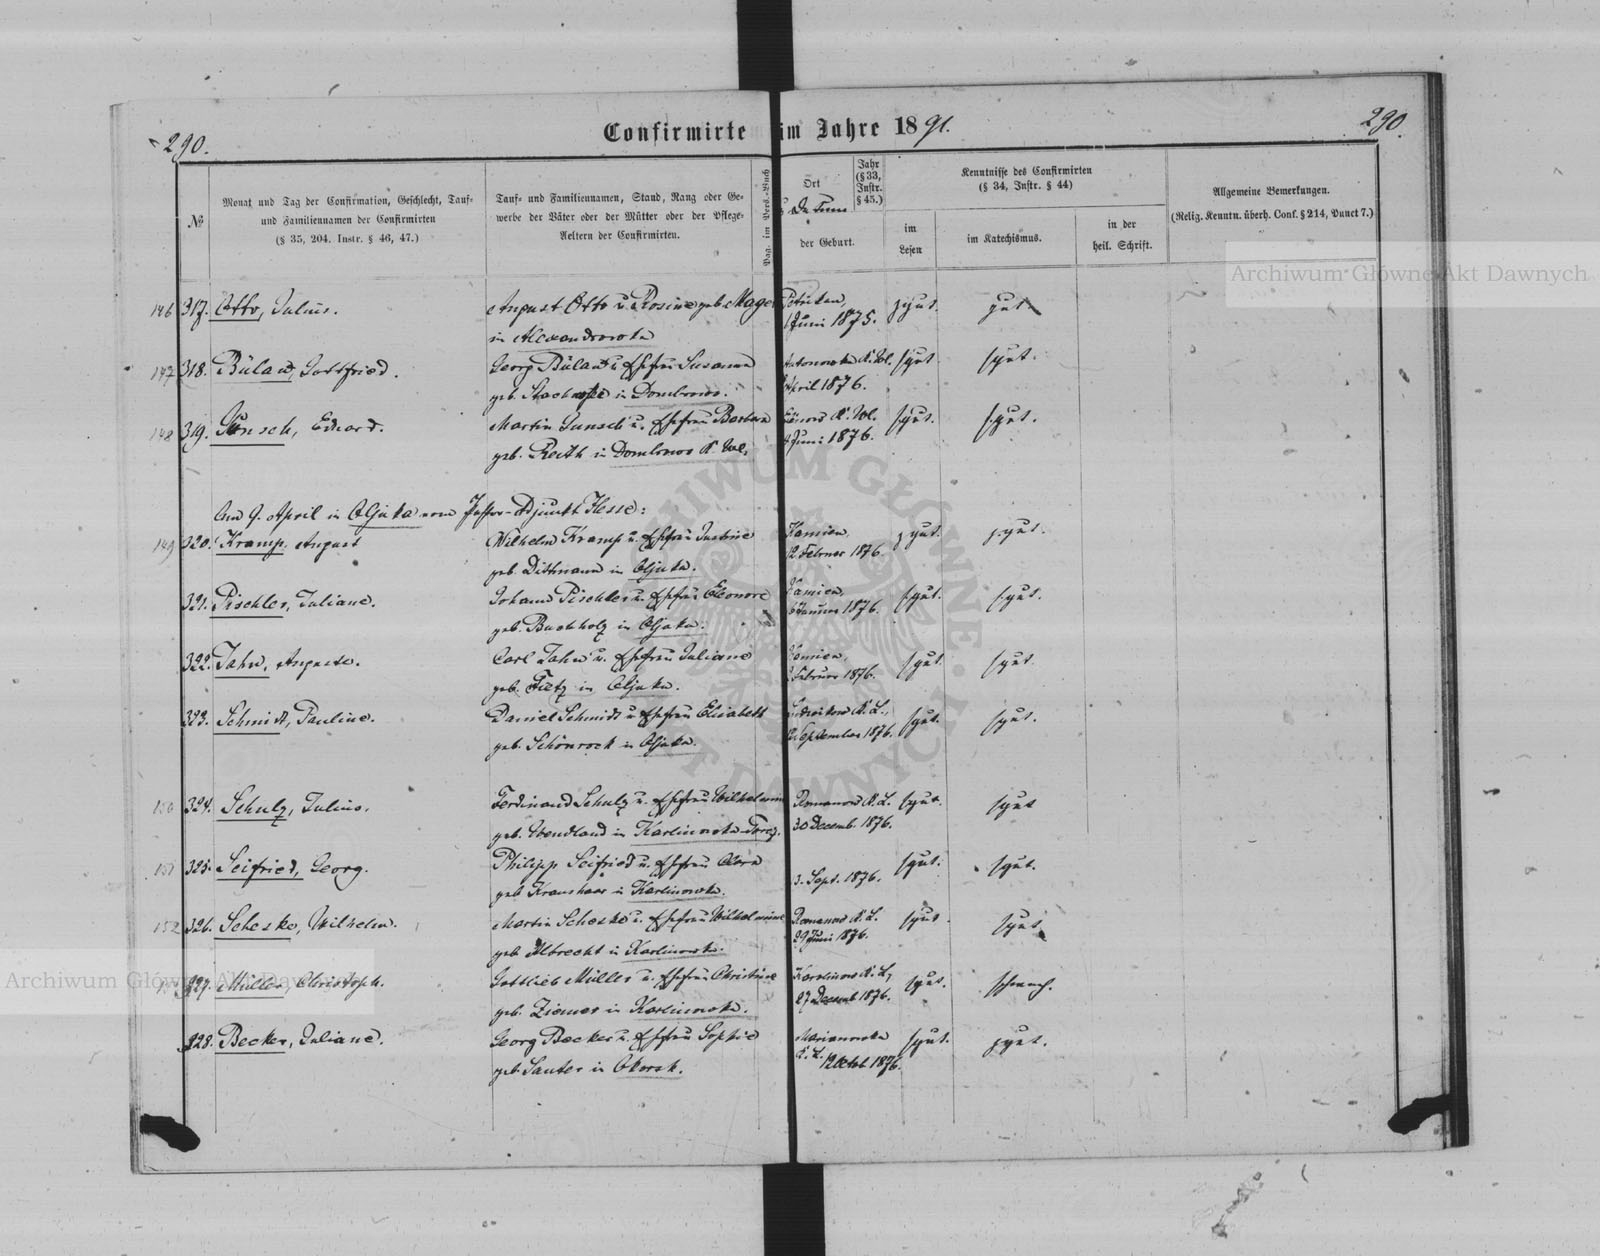 290.
Confirmirte im Jahre 1891.
290.
№
Monat und Tag der Confirmation, Geschlecht, Tauf-
und Familiennamen der Confirmirten
(§ 35, 204. Instr. § 46, 47.)
Tauf- und Familiennamen, Stand, Rang oder Ge-
werbe der Väter oder der Mütter oder der Pflege-
Aeltern der Confirmirten.
Pag. im Pers.-Buch
Ort
der Geburt.
Jahr
(§ 33,
Instr.
§ 45.)
Kenntnisse des Confirmirten
(§ 34, Instr. § 44)
im
Lesen
im Katechismus.
in der
heil. Schrift.
Allgemeine Bemerkungen.
(Relig. Kenntn. überh. Conf. § 214, Punct 7.)
146 317. Otto, Julius.
August Otto u. Rosine geb. Mage
in Alexandrowka
Juni 1875.
gut.
gut.
147 318. Bülau, Gottfried.
Georg Bülau u. Ehefrau Susanna
geb. in Dombrowo.
Antonowka K. W.
April 1876.
s. gut
s. gut.
148 319. Günsch, Eduard.
Martin Günsch u. Ehefrau Barbara
geb. Reith in Dombrowo K. Wl.
K. Wl.
Juni 1876.
s. gut.
s. gut.
Am 9. April in Olyka vom Pastor-Adjunkt Hesse:
149 320. Kramp, August
Wilhelm Kramp u. Ehefrau Justine
geb. Dittmann in Olyka.
Kamien,
12 Februar 1876.
gut.
s. gut.
321. Pischler, Juliane.
Johann Pischler u. Ehefrau Eleonore
geb. Buchholz in Olyka.
Kamien,
6 Januar 1876.
s. gut.
s. gut.
322. Jahn, Auguste.
Carl Jahn u. Ehefrau Juliane
geb. Tietz in Olyka.
Kamien,
Februar 1876.
s. gut.
s. gut.
323. Schmidt, Pauline.
Daniel Schmidt u. Ehefrau Elisabeth
geb. Schönrock in Olyka.
K. L.,
September 1876.
s. gut.
s. gut.
150 324. Schulz, Julius.
Ferdinand Schulz u. Ehefrau Wilhelmine
geb. Wendland in Karlinowka
Romanow K. L.
30 Decemb. 1876.
s. gut.
s. gut
151 325. Seifried, Georg.
Philipp Seifried u. Ehefrau Clara
geb. Kraushaar in Karlinowka.
3. Sept. 1876.
s. gut.
s. gut.
152 326. Scheske, Wilhelm.
Martin Scheske u. Ehefrau Wilhelmine
geb. Albrecht in Karlinowka.
Romanow K. L.
29 Juni 1876.
s. gut.
s. gut
327. Müller, Christoph.
Gottlieb Müller u. Ehefrau Christine
geb. Ziemer in Karlinowka.
Karolinow K. L,
27 Decemb 1876.
s. gut.
schwach.
328. Becker, Juliane.
Georg Becker u. Ehefrau Sophie
geb. Sauter in Okorsk.
Marianowka
K. L.
12 Octob. 1876.
s. gut.
s. gut.
Archiwum Główne Akt Dawnych
Archiwum Główne Akt Dawnych
ARCHIWUM GŁÓWNE AKT DAWNYCH